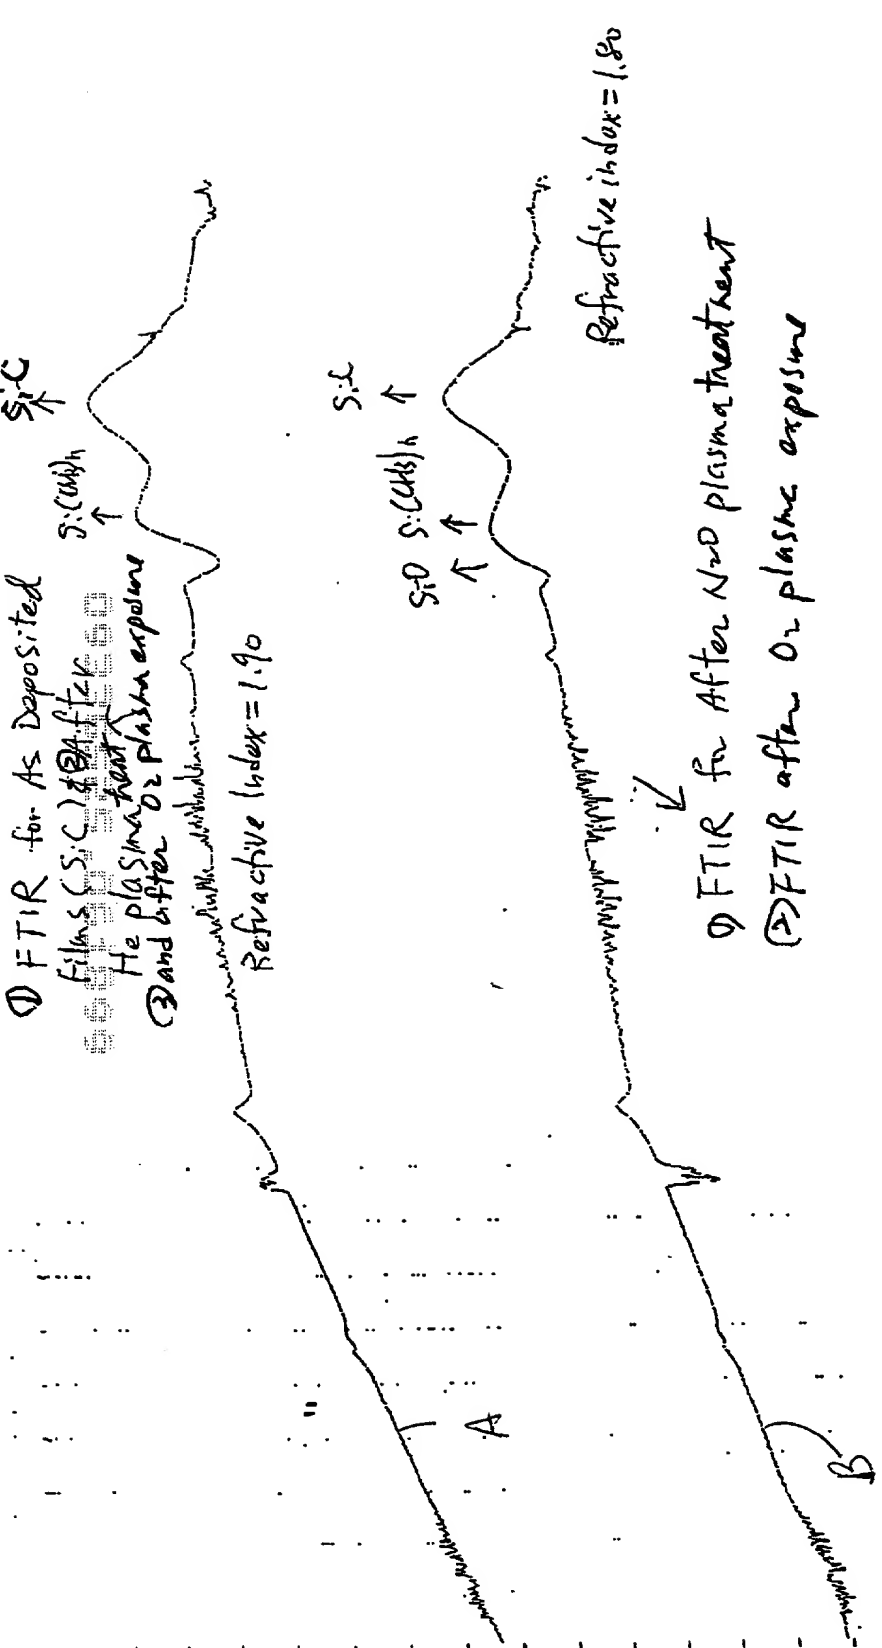 ① FTIR for As Deposited
Films (SiC) ② After
He plasma treatment
③ and after O2 plasma exposure
Si(CH3)n
SiC
Refractive Index = 1.90
A
SiO Si(CH3)n
SiC
Refractive index = 1.80
1) FTIR for After N2O plasma treatment
(2) FTIR after O2 plasma exposure
B